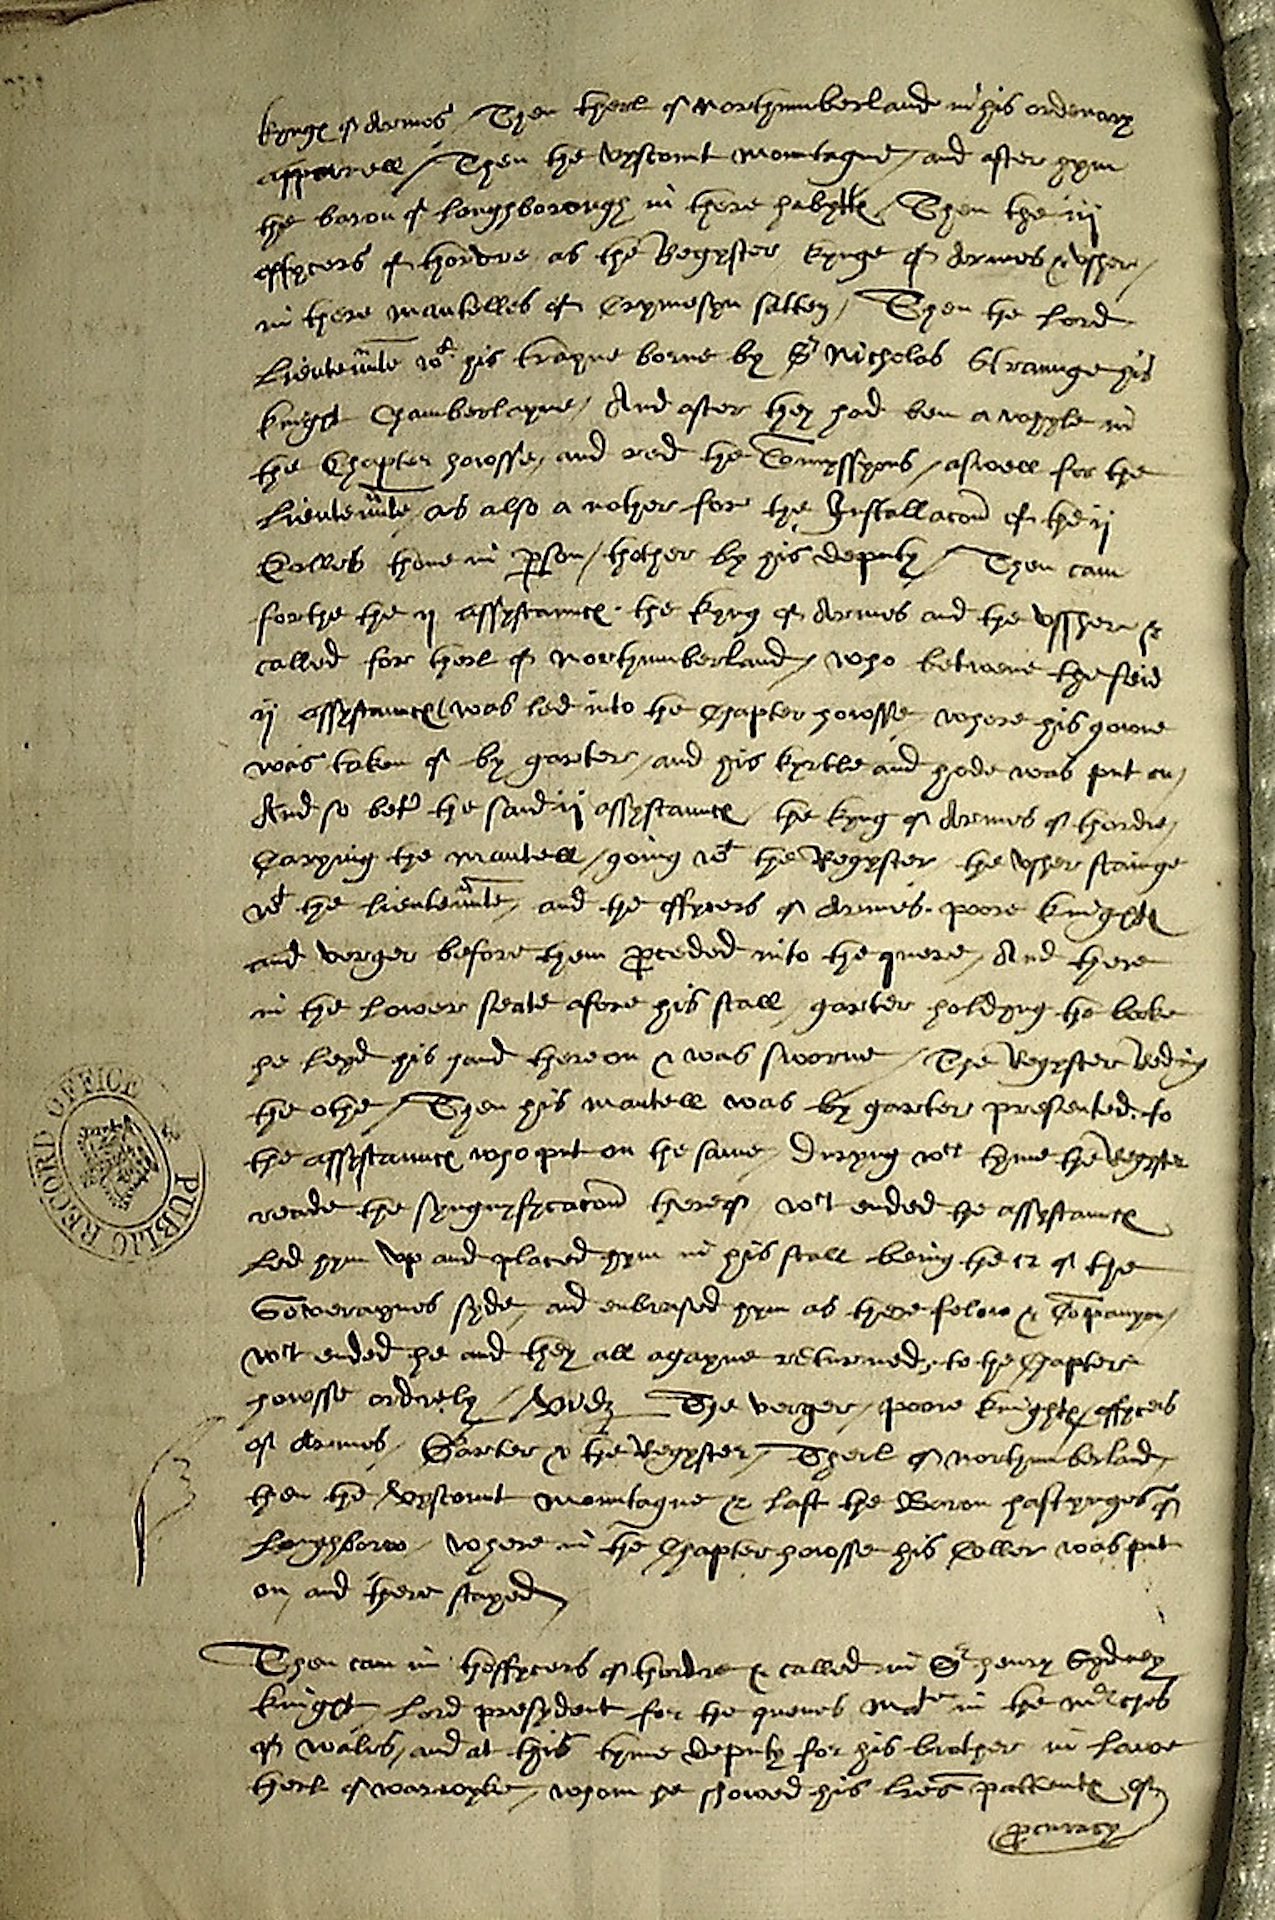 kyng of Armes / Then therl of Northumberland in his ordenary
apparrell / Then the vyscount Mountague / and after hym
the baron of Loughborough in there habytes / Then the iij
offycers of thordre as the Regyster kynge of Armes & vsher /
in there mantelles of Crymosyn satten / Then the Lord
Lieutenũte wt his trayne borne by Sr Nicholas Straunge his
knight Chamberlayne / And after they had ben a whyle in
the Chapter howsse / and red the Comyssyons / aswell for the
Lieutenũte as also a nother fore the Installacon of the ij
Earles thone in pson / thother by his deputy / Then cam
forthe the ij assystauntes the kyng of Armes and the vssher &
called for therl of Northumberland / who betwene the seid
ij assystauntes was led into the Chapter howsse / where his gowne
was taken of by garter / and his kyrtle and hode was put on /
And so betw the said ij assystauntes / the kyng of Armes of thordre /
Carying the mantell / going wt the Regyster the vsher stainge
wt the Lieutenũte / and the offycers of Armes poore knightes
and verger before them pceded into the quere / And there
in the lower seate afore his stall / garter holdyng the booke
he leyd his hand thereon & was sworne / The Regyster Reding
the othe / Then his mantell was by garter presented to
the assystauntes who put on the same / Duryng wch tyme the Regyster
reade the syngnyfycacon thereof / wch ended the assystauntes
Led hym vp and placed hym in his stall being the 12 of the
Soveraignes syde / and enbrased hym as there felow & Copanyon /
wch ended he and they all agayne returned to the Chapter
howsse orderly / vidz The verger / poore knightes / offycers
of Armes / Garter & the Regyster / Therl of Northumberland /
then the vyscount Mountague & last the Baron hastynges of
Loughborow / where in the Chapter howsse his Coller was put
on / and there stayed /
Then cam in thoffycers of thordre & called in Sr henry Sydney
knight Lord presydent for the quenes Matie in the mrches
of Wales / and at this tyme deputy for his brother in lawe
therl of Warwyke / whom he showed his lres pattentes of
pcuracy
PUBLIC RECORD OFFICE